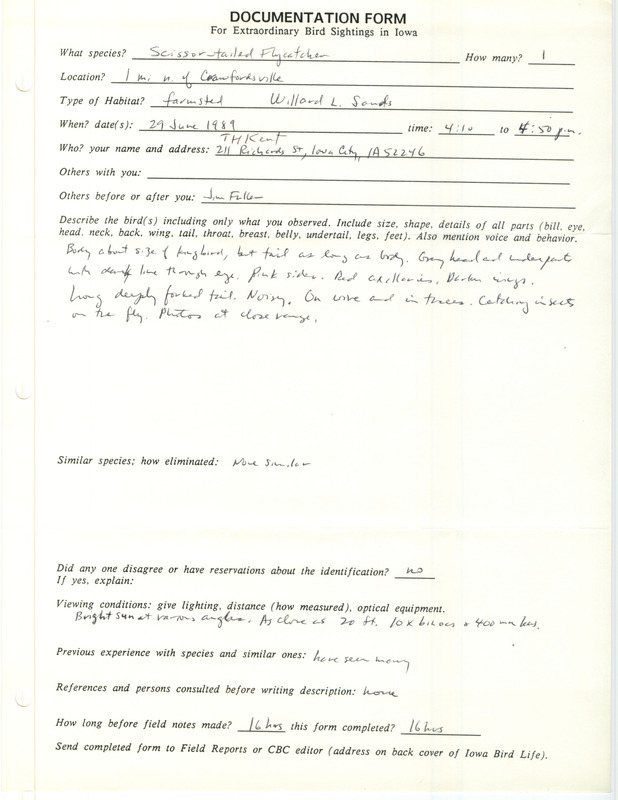 DOCUMENTATION FORM
For Extraordinary Bird Sightings in Iowa
What species? Scissor-tailed Flycatcher How many? 1
Location? 1 mi n. of Crawfordsville
Type of Habitat? farmsted Willard L. Sands
When? date(s): 29 June 1989 time: 4:10 to 4:50 p.m.
TH Kent
Who? your name and address: 211 Richards St, Iowa City, IA 52246
Others with you:
Others before or after you: Jim Fuller
Describe the bird(s) including only what you observed. Include size, shape, details of all parts (bill, eye,
head, neck, back, wing, tail, throat, breast, belly, undertail, legs, feet). Also mention voice and behavior.
Body about size of kingbird, but tail as long as body. Gray head and underparts
with dark line through eye. Pink sides. Red axillaries. Darker wings.
Long deeply forked tail. Noisy. On wire and in trees. Catching insects
on the fly. Photos at close range.
Similar species; how eliminated: None similar
Did any one disagree or have reservations about the identification? no
If yes, explain:
Viewing conditions: give lighting, distance (how measured), optical equipment.
Bright sun at various angles. As close as 20 ft. 10x binocs + 400 mm lens.
Previous experience with species and similar ones: have seen many
References and persons consulted before writing description: none
How long before field notes made? 16 hrs this form completed? 16 hrs
Send completed form to Field Reports or CBC editor (address on back cover of Iowa Bird Life).